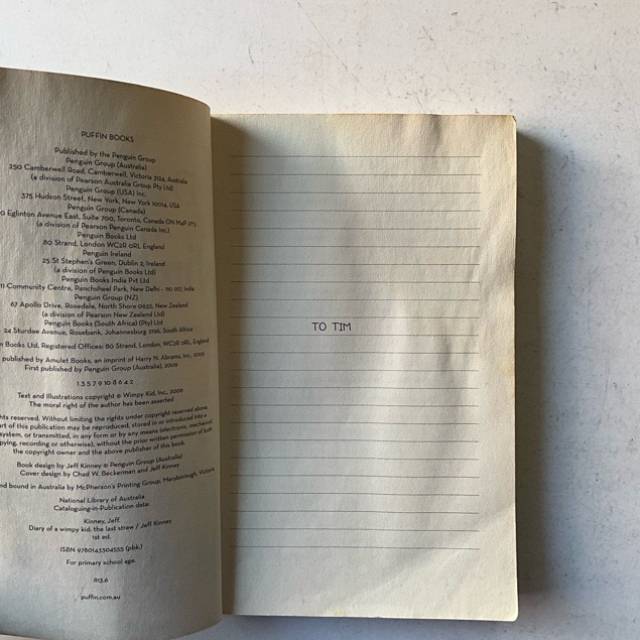 PUFFIN BOOKS
Published by the Penguin Group
Penguin Group (Australia)
250 Camberwell Road, Camberwell, Victoria 3124, Australia
(a division of Pearson Australia Group Pty Ltd)
Penguin Group (USA) Inc.
375 Hudson Street, New York, New York 10014, USA
Penguin Group (Canada)
Eglinton Avenue East, Suite 700, Toronto, Canada ON M4P
(a division of Pearson Penguin Canada Inc.)
Penguin Books Ltd
80 Strand, London WC2R 0RL England
Penguin Ireland
25 St Stephen's Green, Dublin 2, Ireland
(a division of Penguin Books Ltd)
Penguin Books India Pvt Ltd
Community Centre, Panchsheel Park, New Delhi - 110 017, India
Penguin Group (NZ)
67 Apollo Drive, Rosedale, North Shore 0632, New Zealand
(a division of Pearson New Zealand Ltd)
Penguin Books (South Africa) (Pty) Ltd
24 Sturdee Avenue, Rosebank, Johannesburg 2196, South Africa
Books Ltd, Registered Offices: 80 Strand, London, WC2R 0RL, England
published by Amulet Books, an imprint of Harry N. Abrams, Inc., 2009
First published by Penguin Group (Australia), 2009
1 3 5 7 9 10 8 6 4 2
Text and illustrations copyright © Wimpy Kid, Inc., 2009
The moral right of the author has been asserted
rights reserved. Without limiting the rights under copyright reserved above,
part of this publication may be reproduced, stored in or introduced into a
system, or transmitted, in any form or by any means (electronic, mechanical,
recording or otherwise), without the prior written permission of both
the copyright owner and the above publisher of this book.
Book design by Jeff Kinney © Penguin Group (Australia)
Cover design by Chad W. Beckerman and Jeff Kinney
and bound in Australia by McPherson's Printing Group, Maryborough, Victoria
National Library of Australia
Cataloguing-in-Publication data:
Kinney, Jeff.
Diary of a wimpy kid, the last straw / Jeff Kinney
1st ed.
ISBN 9780143304555 (pbk.)
For primary school age.
813.6
puffin.com.au
TO TIM